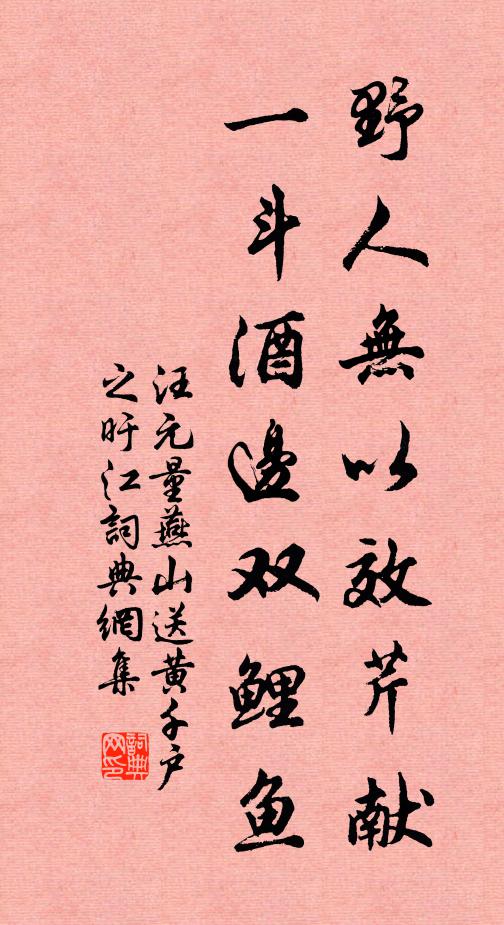 野人無以效芹献
一斗酒邊双鲤鱼
汪元量燕山送黄千户
之盱江詞典網集
詞典网印